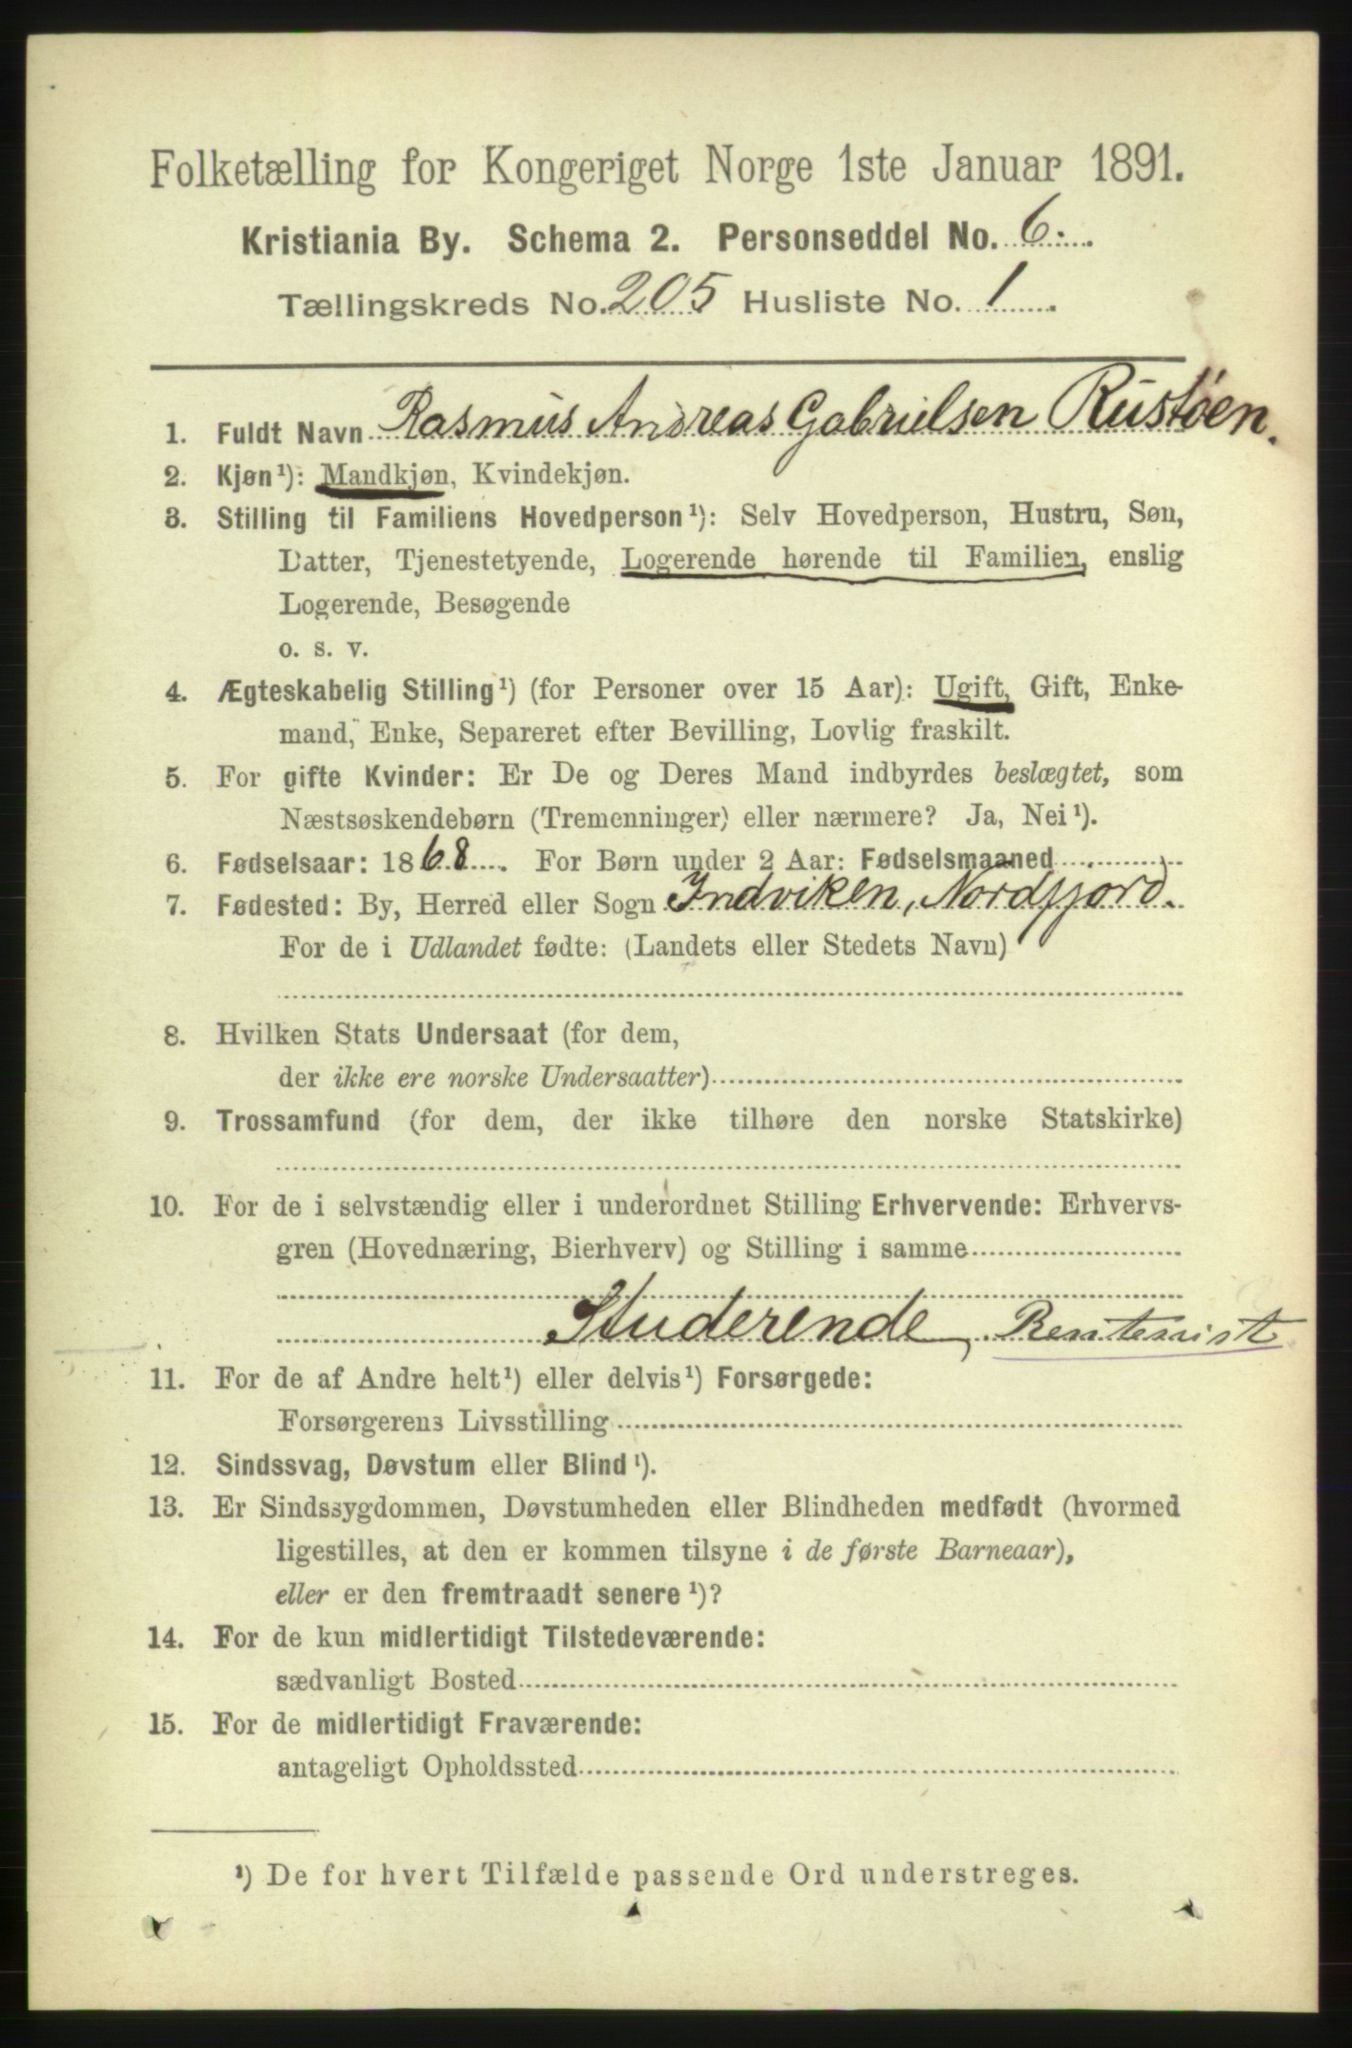 Folketælling for Kongeriget Norge 1ste Januar 1891.
Kristiania By. Schema 2. Personseddel No. 6.
Tællingskreds No. 205 Husliste No. 1
1. Fuldt Navn Rasmus Andreas Gabrielsen Rustøen.
2. Kjøn¹): Mandkjøn, Kvindekjøn.
3. Stilling til Familiens Hovedperson¹): Selv Hovedperson, Hustru, Søn,
Datter, Tjenestetyende, Logerende hørende til Familien, enslig
Logerende, Besøgende
o. s. v.
4. Ægteskabelig Stilling¹) (for Personer over 15 Aar): Ugift, Gift, Enke-
mand, Enke, Separeret efter Bevilling, Lovlig fraskilt.
5. For gifte Kvinder: Er De og Deres Mand indbyrdes beslægtet, som
Næstsøskendebørn (Tremenninger) eller nærmere? Ja, Nei¹).
6. Fødselsaar: 1868. For Børn under 2 Aar: Fødselsmaaned
7. Fødested: By, Herred eller Sogn Indviken, Nordfjord.
For de i Udlandet fødte: (Landets eller Stedets Navn)
8. Hvilken Stats Undersaat (for dem,
der ikke ere norske Undersaatter)
9. Trossamfund (for dem, der ikke tilhøre den norske Statskirke)
10. For de i selvstændig eller i underordnet Stilling Erhvervende: Erhvervs-
gren (Hovednæring, Bierhverv) og Stilling i samme
Studerende, Rentenist
11. For de af Andre helt¹) eller delvis¹) Forsørgede:
Forsørgerens Livsstilling
12. Sindssvag, Døvstum eller Blind¹).
13. Er Sindssygdommen, Døvstumheden eller Blindheden medfødt (hvormed
ligestilles, at den er kommen tilsyne i de første Barneaar),
eller er den fremtraadt senere¹)?
14. For de kun midlertidigt Tilstedeværende:
sædvanligt Bosted
15. For de midlertidigt Fraværende:
antageligt Opholdssted
¹) De for hvert Tilfælde passende Ord understreges.